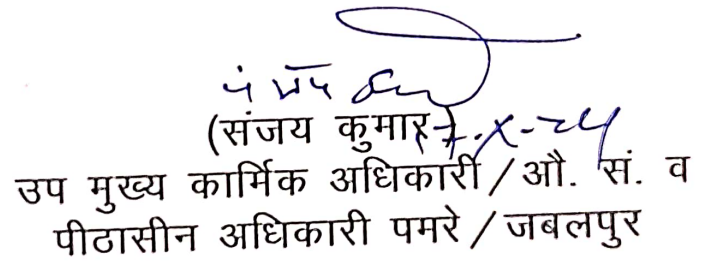 (संजय कुमार)
उप मुख्य कार्मिक अधिकारी / औ. सं. व
पीठासीन अधिकारी पमरे / जबलपुर